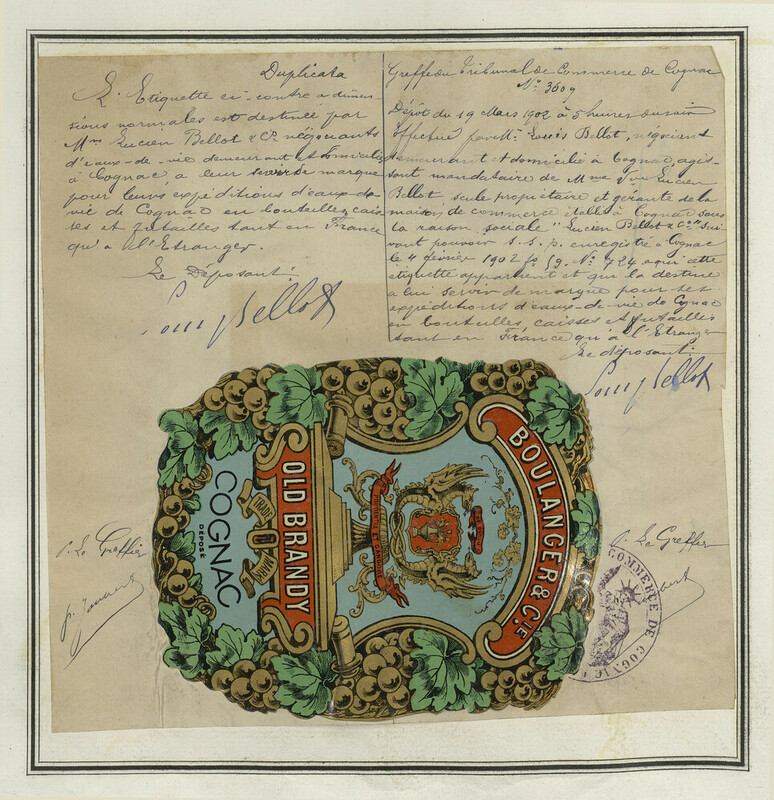 Duplicata
L'Etiquette ci-contre a dimen-
sions normales est destinée par
Mm Lucien Bellot & Co négociants
d'eaux-de-vie demeurant et domiciliés
à Cognac a leur servir de marque
pour leurs expéditions d'eaux-de-
vie de Cognac en bouteilles, cais-
ses et futailles tant en France
qu'à l'Etranger.
Le Déposant:
Louis Bellot
Greffe du Tribunal de Commerce de Cognac
No 3609
Dépôt du 19 Mars 1902 à 5 heures du soir
Effectué par Mr Louis Bellot, négociant
demeurant et domicilié à Cognac, agis-
sant mandataire de Mme Vve Lucien
Bellot seule propriétaire et gérante de la
maison de commerce établie à Cognac sous
la raison sociale "Lucien Bellot & Co" sui-
vant pouvoir s.s.p. enregistré à Cognac
le 4 février 1902 fo 19. No 724 a qui cette
étiquette appartient et qui la destine
a lui servir de marque pour ses
expéditions d'eaux-de-vie de Cognac
en bouteilles, caisses et futailles
tant en France qu'à l'Etranger
Le déposant:
Louis Bellot
BOULANGER & CIE
OLD BRANDY
TRADE MARK
COGNAC
DEPOSÉ
p. Le Greffier
p. Le Greffier
COMMERCE DE COGNAC